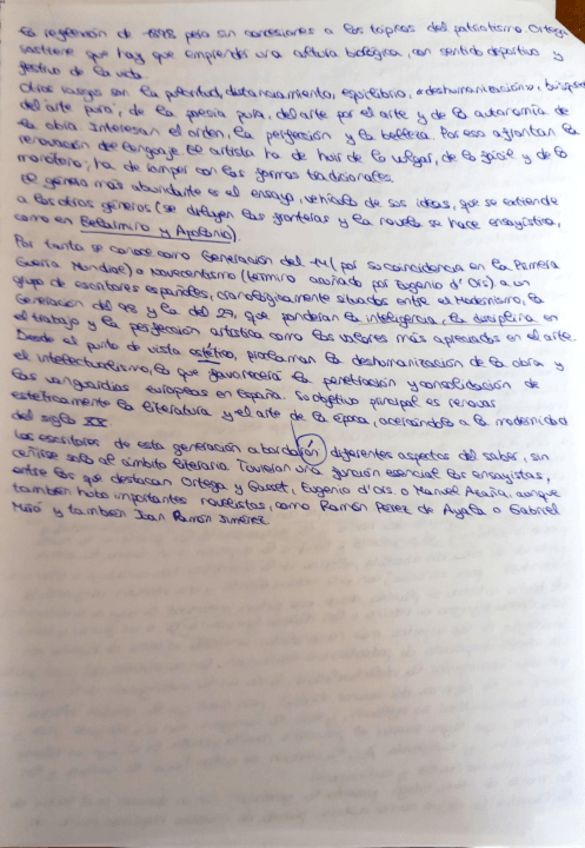 la regeneración de 1898 pero sin concesiones a los tópicos del patriotismo. Ortega
sostiene que hay que emprender una cultura biológica, con sentido deportivo y
festivo de la vida.
Otros rasgos son la pulcritud, distanciamiento, equilibrio, «deshumanización», búsqueda
del "arte puro", de la poesía pura, del arte por el arte y de la autonomía de
la obra. Interesan el orden, la perfección y la belleza. Por eso afrontan la
renovación de lenguaje. El artista ha de huir de lo vulgar, de lo fácil y de lo
ha de romper con las formas tradicionales.
El género más abundante es el ensayo, vehículo de sus ideas, que se extiende
a los otros géneros (se diluyen las fronteras y la novela se hace ensayística,
como en Bellarmino y Apolonio).
Por tanto se conoce como Generación del 14 (por su coincidencia en la Primera
Guerra Mundial) o Novecentismo (término acuñado por Eugenio d'Ors) a un
grupo de escritores españoles, cronológicamente situados entre el Modernismo, la
Generación del 98 y la del 27, que ponderan la inteligencia, la disciplina en
el trabajo y la perfección artística como los valores más apreciados en el arte.
Desde el punto de vista estético, proclaman la deshumanización de la obra y
el intelectualismo, lo que favorecerá la penetración y consolidación de
las vanguardias europeas en España. Su objetivo principal es renovar
estéticamente la literatura y el arte de la época, acercándola a la modernidad
del siglo XX.
Los escritores de esta generación abordarón diferentes aspectos del saber, sin
ceñirse solo al ámbito literario. Tuvieron una función esencial los ensayistas,
entre los que destacan Ortega y Gasset, Eugenio d'Ors o Manuel Azaña, aunque
también hubo importantes novelistas, como Ramón Pérez de Ayala o Gabriel
Miró y también Juan Ramón Jiménez.